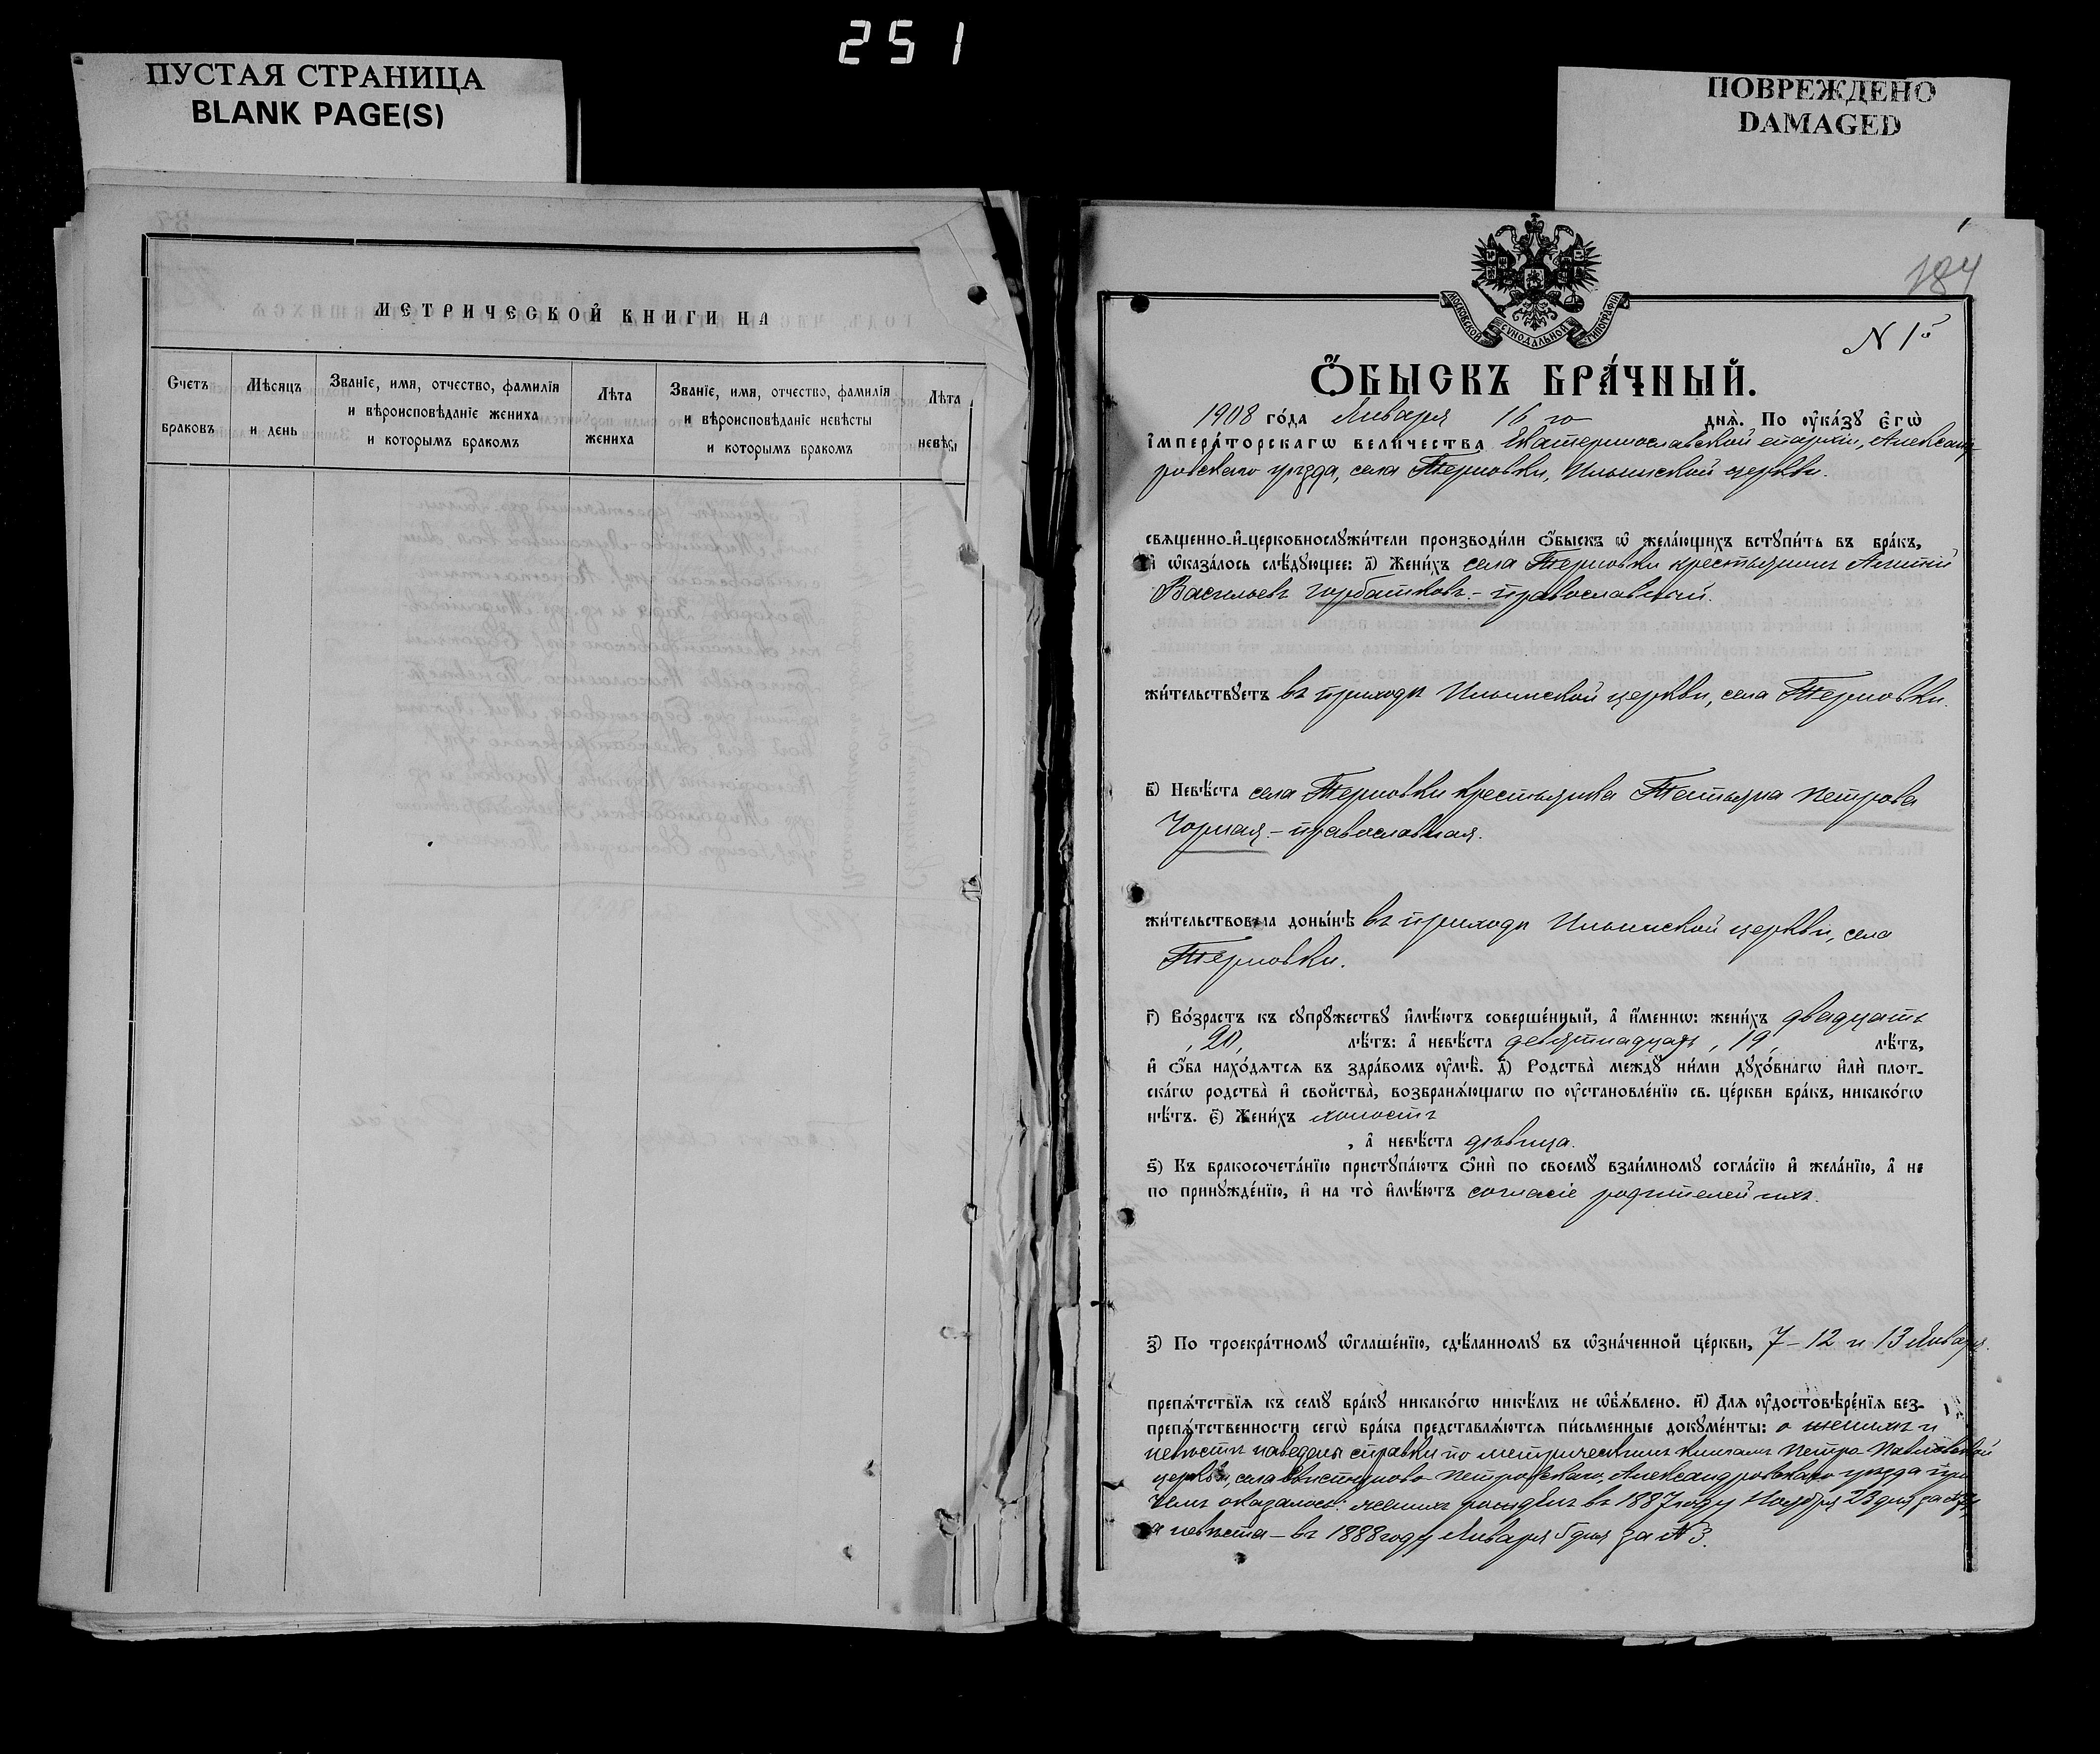 251
ПУСТАЯ СТРАНИЦА
BLANK PAGE(S)
ПОВРЕЖДЕНО
DAMAGED
МЕТРИЧЕСКОЙ КНИГИ НА
Счетъ браковъ
Мѣсяцъ и день
Званіе, имя, отчество, фамилія и вѣроисповѣданіе жениха и которымъ бракомъ
Лѣта жениха
Званіе, имя, отчество, фамилія и вѣроисповѣданіе невѣсты и которымъ бракомъ
Лѣта невѣс
184
МОСКОВСКОЙ СѴНОДАЛЬНОЙ ТИПОГРАФІИ
N 1й
Ѻ҆БЫСКЪ БРА́ЧНЫЙ.
1908 го́да Января 16 го днѧ̀. По ᲂу҆ка́зꙋ є҆гѡ̀
і҆мпера́торскагѡ вели́чества Екатеринославской епархіи, Александ-
ровскаго уѣзда, села Терновки, Ильинской церкви.
свѧщенно-и҆-церковнослꙋжи́тели производи́ли ѻ҆́быскъ ѡ҆ жела́ющихъ встꙋпи́ть въ бра́къ,
и҆ ѡ҆каза́лось слѣ́дꙋющее: а҃) Жени́хъ села Терновки крестьянинъ Антній
Васильевъ Горбатковъ. - православный.
жи́тельствꙋетъ въ приходѣ Ильинской церкви, села Терновки.
в҃) Невѣ́ста села Терновки крестьянка Татьяна Петрова
Чорная. - православная.
жи́тельствовала доны́нѣ въ приходѣ Ильинской церкви, села
Терновки.
г҃) Во́зрастъ къ сꙋпрꙋжествꙋ и҆мѣ́ютъ соверше́нный, а҆ и҆́меннѡ: жени́хъ двадцать
, 20, лѣ́тъ: а҆ невѣ́ста девятнадцать, 19, лѣ́тъ,
и҆ ѻ҆́ба нахо́дѧтсѧ въ здра́вомъ ᲂу҆мѣ̀. д҃) Родства̀ междꙋ̀ ни́ми дꙋхо́внагѡ и҆лѝ плот-
ска́гѡ родства̀ и҆ свойства̀, возбранѧ́ющагѡ по ᲂу҆становле́нїю св. це́ркви бра́къ, никако́гѡ
нѣ́тъ. є҃) Жени́хъ холостъ
, а҆ невѣ́ста дѣвица.
ѕ҃) Къ бракосочета́нїю пристꙋпа́ютъ ѻ҆нѝ по своемꙋ̀ взаи́мномꙋ согла́сїю и҆ жела́нїю, а҆ не
по принꙋжде́нїю, и҆ на то̀ и҆мѣ́ютъ согласіе родителей ихъ.
з҃) По троекра́тномꙋ ѡ҆глаше́нїю, сдѣ́ланномꙋ въ ѡ҆зна́ченной це́ркви, 7-12 и 13 Января.
препѧ́тствїѧ къ семꙋ̀ бра́кꙋ никако́гѡ никѣ́мъ не ѡ҆б̾ѧ́влено. и҃) Длѧ ᲂу҆достовѣре́нїѧ без-
препѧ́тственности сегѡ̀ бра́ка представлѧ́ютсѧ пи́сьменные докꙋме́нты: о женихѣ и
невѣстѣ наведены справки по метрическимъ книгамъ Петро-Павловской
церкви, села Петровскаго, Александровскаго уѣзда при
чемъ оказалось: женихъ рожденъ въ 1887 году Ноября 23 дня за
а невѣста - въ 1888 году Января 5 дня за № 3.